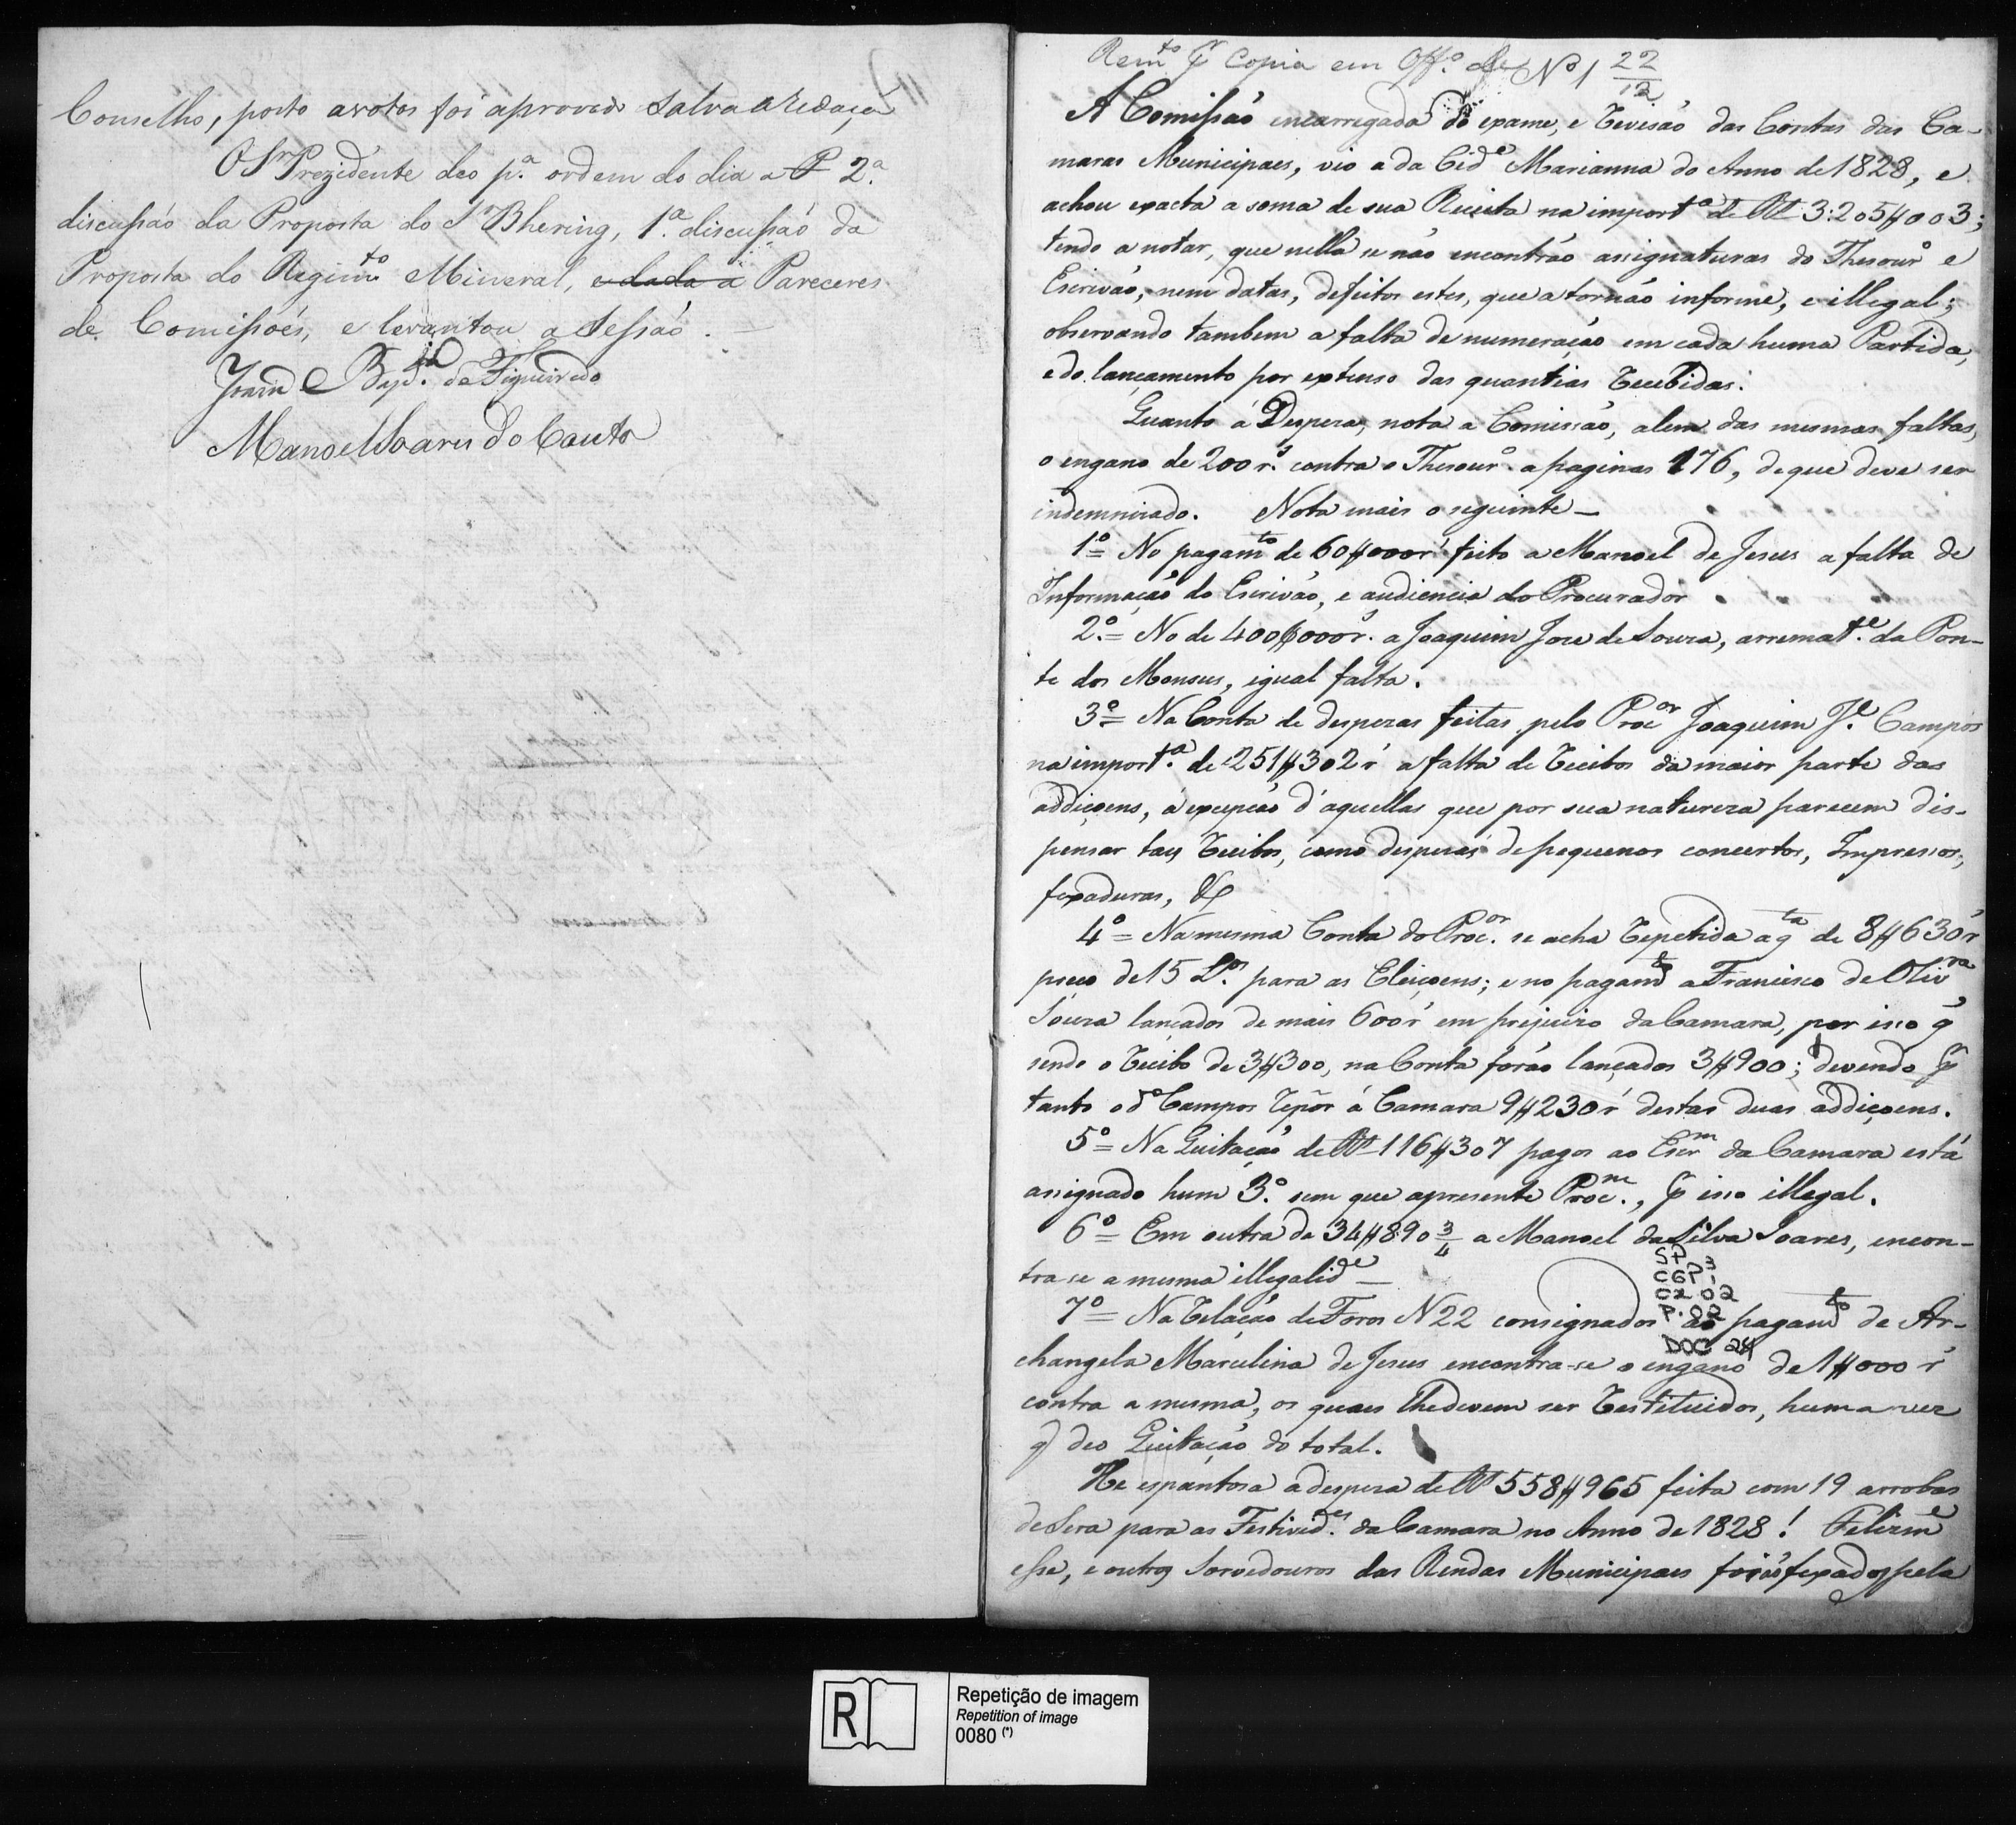 Conselho, posto avotos foi aprovado Salva aredação
O Sr Prezidente deo pª. ordem do dia a P 2ª.
discussaõ da Proposta do Sr Bhering, 1ª. discussaõ da
Proposta do Regimto. Mineral, e dada a Pareceres
de Comissoẽs, e levantou a Sessaõ. —
Joam Bapta. de Figueiredo
Manoel Soares do Couto
Remto pr Copia em Offº. de Nº 1 22/12
A Comissaõ encarregada do exame, e revisaõ das Contas das Ca-
maras Municipaes, vio a da Cide Marianna do Anno de 1828, e
achou exacta a soma de sua Receita na importª de Rs 3:205$003;
tendo a notar, que nella se naõ encontraõ assignaturas do Thesourº e
Escrivaõ, nem datas, defeitos estes, que a tornaõ informe, e illegal;
observando tambem a falta de numeraçaõ em cada huma Partida,
e do lançamento por extenso das quantias recebidas.
Quanto á Despeza, nota a Comissaõ, alem das mesmas faltas,
o engano de 200 rs. contra o Thesourº. a paginas 176, de que deve ser
indemnizado. Nota mais o seguinte —
1º = No pagamto de 60$000 rs feito a Manoel de Jesus a falta de
Informaçaõ do Escrivaõ, e audiencia do Procurador
2º = No de 400$000 rs. a Joaquim Joze de Souza, arremate. da Pon-
te dos Monsus, igual falta.
3º = Na Conta de despezas feitas pelo Procor Joaquim Je. Campos
na importª. de 251$302 rs a falta de recibos da maior parte das
addiçoens, á excepçaõ d'aquellas que por sua natureza parecem dis-
pensar taes recibos, como despezas de pequenos concertos, Impressos,
fexaduras, &
4º = Na mesma Conta do Procor. se acha repetida a qta de 8$630 rs
preço de 15 Los. para as Eleiçoens; e no pagamto a Francisco de Olivra
Souza lançados de mais 600 rs em prejuizo da Camara, por isso q̃
sendo o recibo de 3$300, na Conta foraõ lançados 3$900; devendo pr
tanto o dº Campos repôr á Camara 9$230 rs destas duas addiçoens.
5º = Na Quitaçaõ de Rs 116$307 pagos ao Escrm da Camara está
assignado hum 3º. sem que apresente Procm., pr isso illegal.
6º = Em outra de 34$890 3/4 a Manoel da Silva Soares, encon-
tra-se a mesma illegalide —
SP
CGP 1 3
CX 02
P. 02
DOC 24
7º = Na relaçaõ de Foros N 22 consignados ao pagamto de Ar-
changela Marcelina de Jesus encontra-se o engano de 1$000 rs
contra a mesma, os quaes lhe devem ser restituidos, huma vez
q̃ deo Quitaçaõ do total.
He espantosa a despeza de Rs 558$965 feita com 19 arrobas
de Sera para as Festivides. da Camara no Anno de 1828! Felizme
esse, e outros Sorvedouros das Rendas Municipaes foraõ fexados pela
R
Repetição de imagem
Repetition of image
0080 (*)